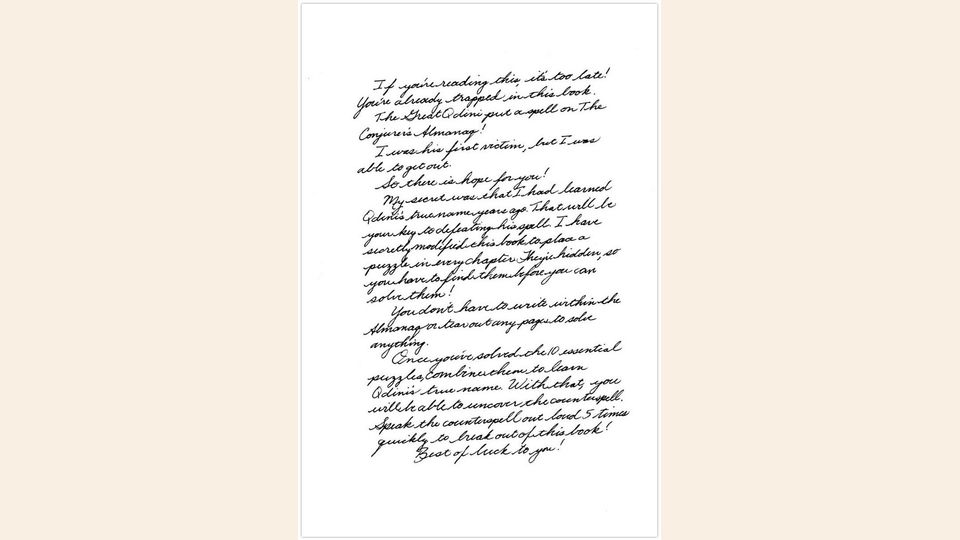 If you're reading this, it's too late!
You're already trapped in this book.
The Great Qdini put a spell on The
Conjuror's Almanaq!
I was his first victim, but I was
able to get out.
So there is hope for you!
My secret was that I had learned
Qdini's true name years ago. That will be
your key to defeating his spell. I have
secretly modified this book to place a
puzzle in every chapter. They're hidden, so
you have to find them before you can
solve them!
You don't have to write within the
Almanaq or tear out any pages to solve
anything.
Once you've solved the 10 essential
puzzles, combine them to learn
Qdini's true name. With that, you
will be able to uncover the counterspell.
Speak the counterspell out loud 5 times
quickly to break out of this book!
Best of luck to you!